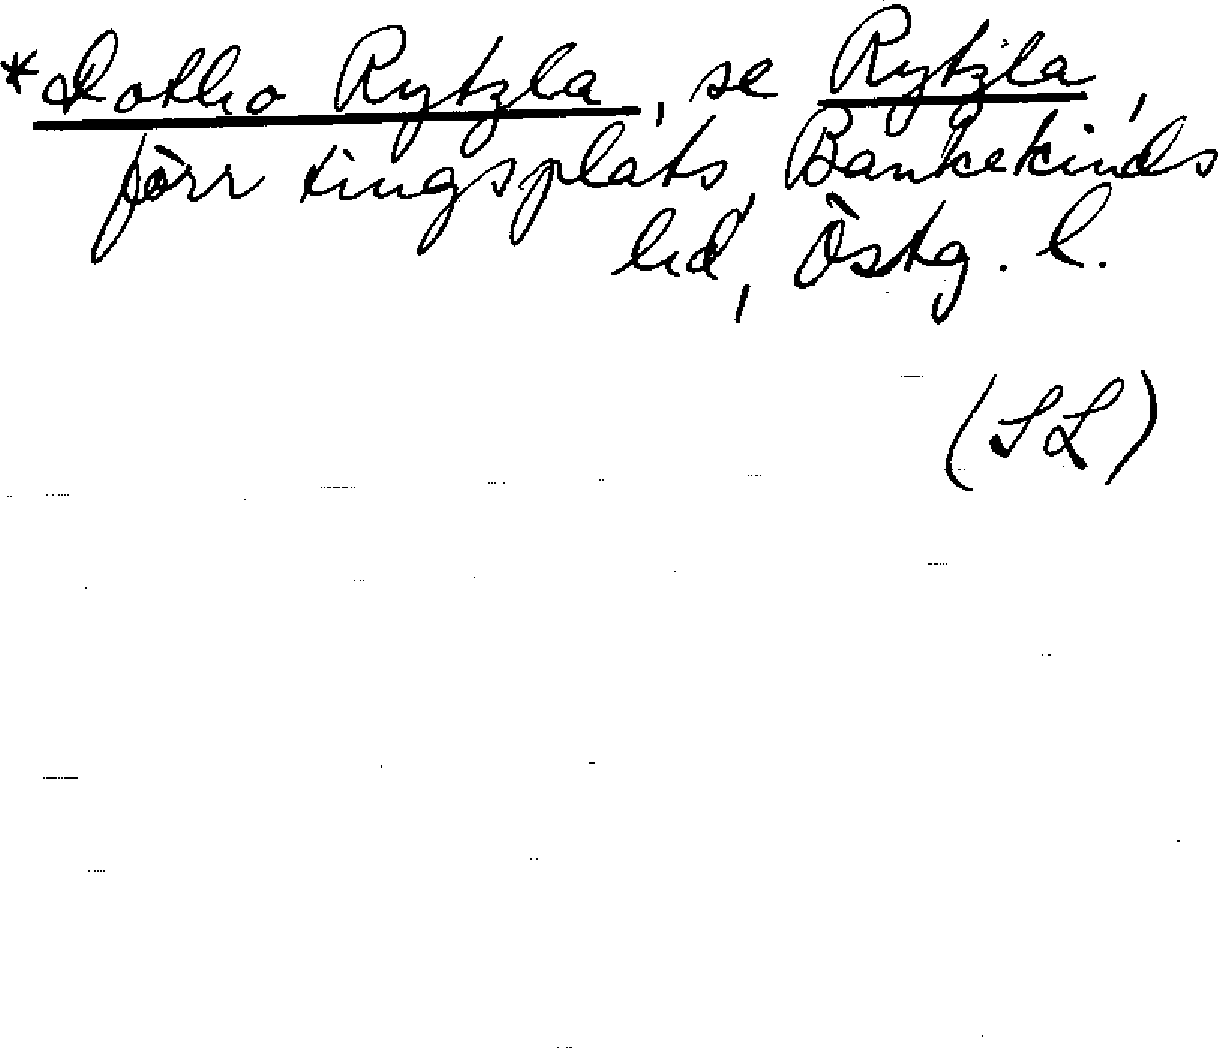 *Lotho Rytzla, se Rytzla,
förr tingsplats, Bankekinds
hd, Östg. l.
(SL)